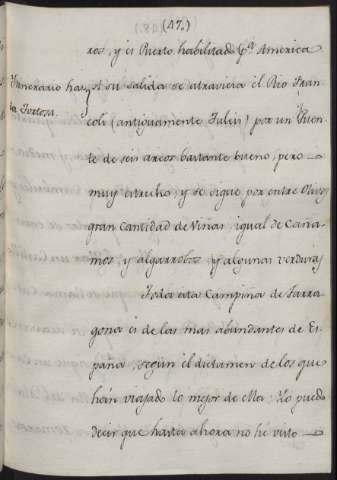 (47.)
ros, y es Puerto habilitado pª America
Ytinerario has
ta Tortosa.
A su salida se atraviesa el Rio Fran
coli (antiguamente Tulcis) por un Puen
te de seis arcos bastante bueno, pero
muy estrecho, y se sigue por entre Olivos
gran cantidad de Viñas, igual de Caña
mos, y Algarrobos, y algunas verduras
Toda esta Campiña de Tarra
gona es de las mas abundantes de Es
paña, según el dictamen de los que
hán viajado lo mejor de ella: Yo puedo
decir que hasta ahora no hé visto